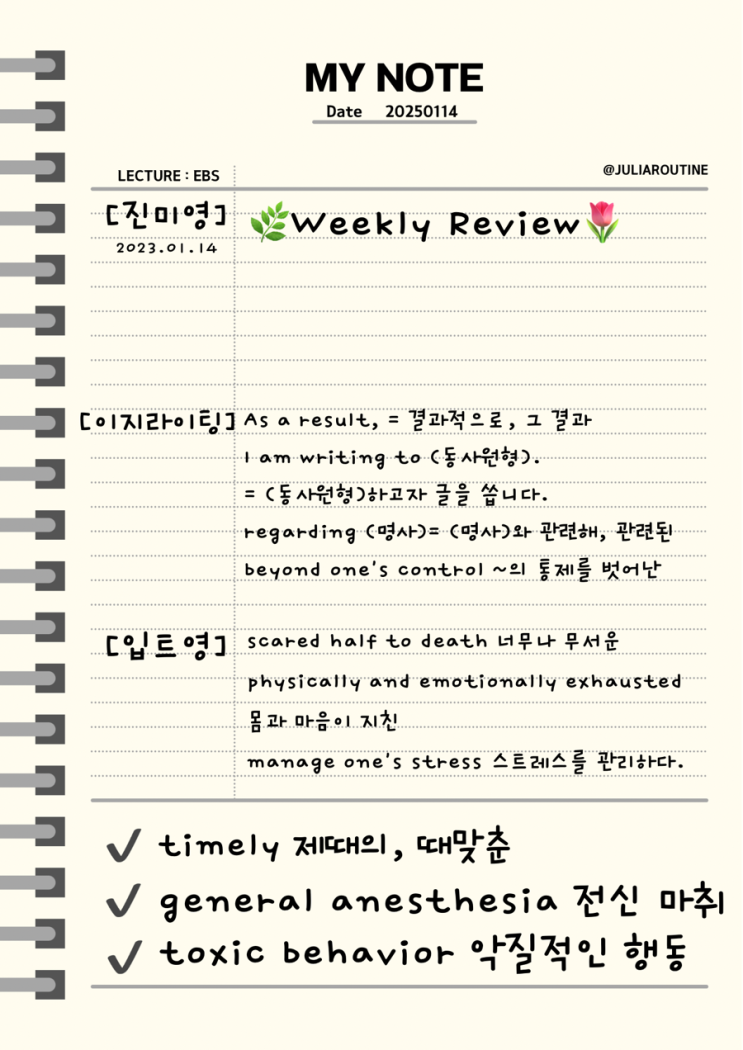 MY NOTE
Date 20250114
LECTURE : EBS
@JULIAROUTINE
[진미영]
2023.01.14
Weekly Review
[이지라이팅]
As a result, = 결과적으로, 그 결과
I am writing to (동사원형).
= (동사원형)하고자 글을 씁니다.
regarding (명사)= (명사)와 관련해, 관련된
beyond one's control ~의 통제를 벗어난
[입트영]
scared half to death 너무나 무서운
physically and emotionally exhausted
몸과 마음이 지친
manage one's stress 스트레스를 관리하다.
timely 제때의, 때맞춘
general anesthesia 전신 마취
toxic behavior 악질적인 행동